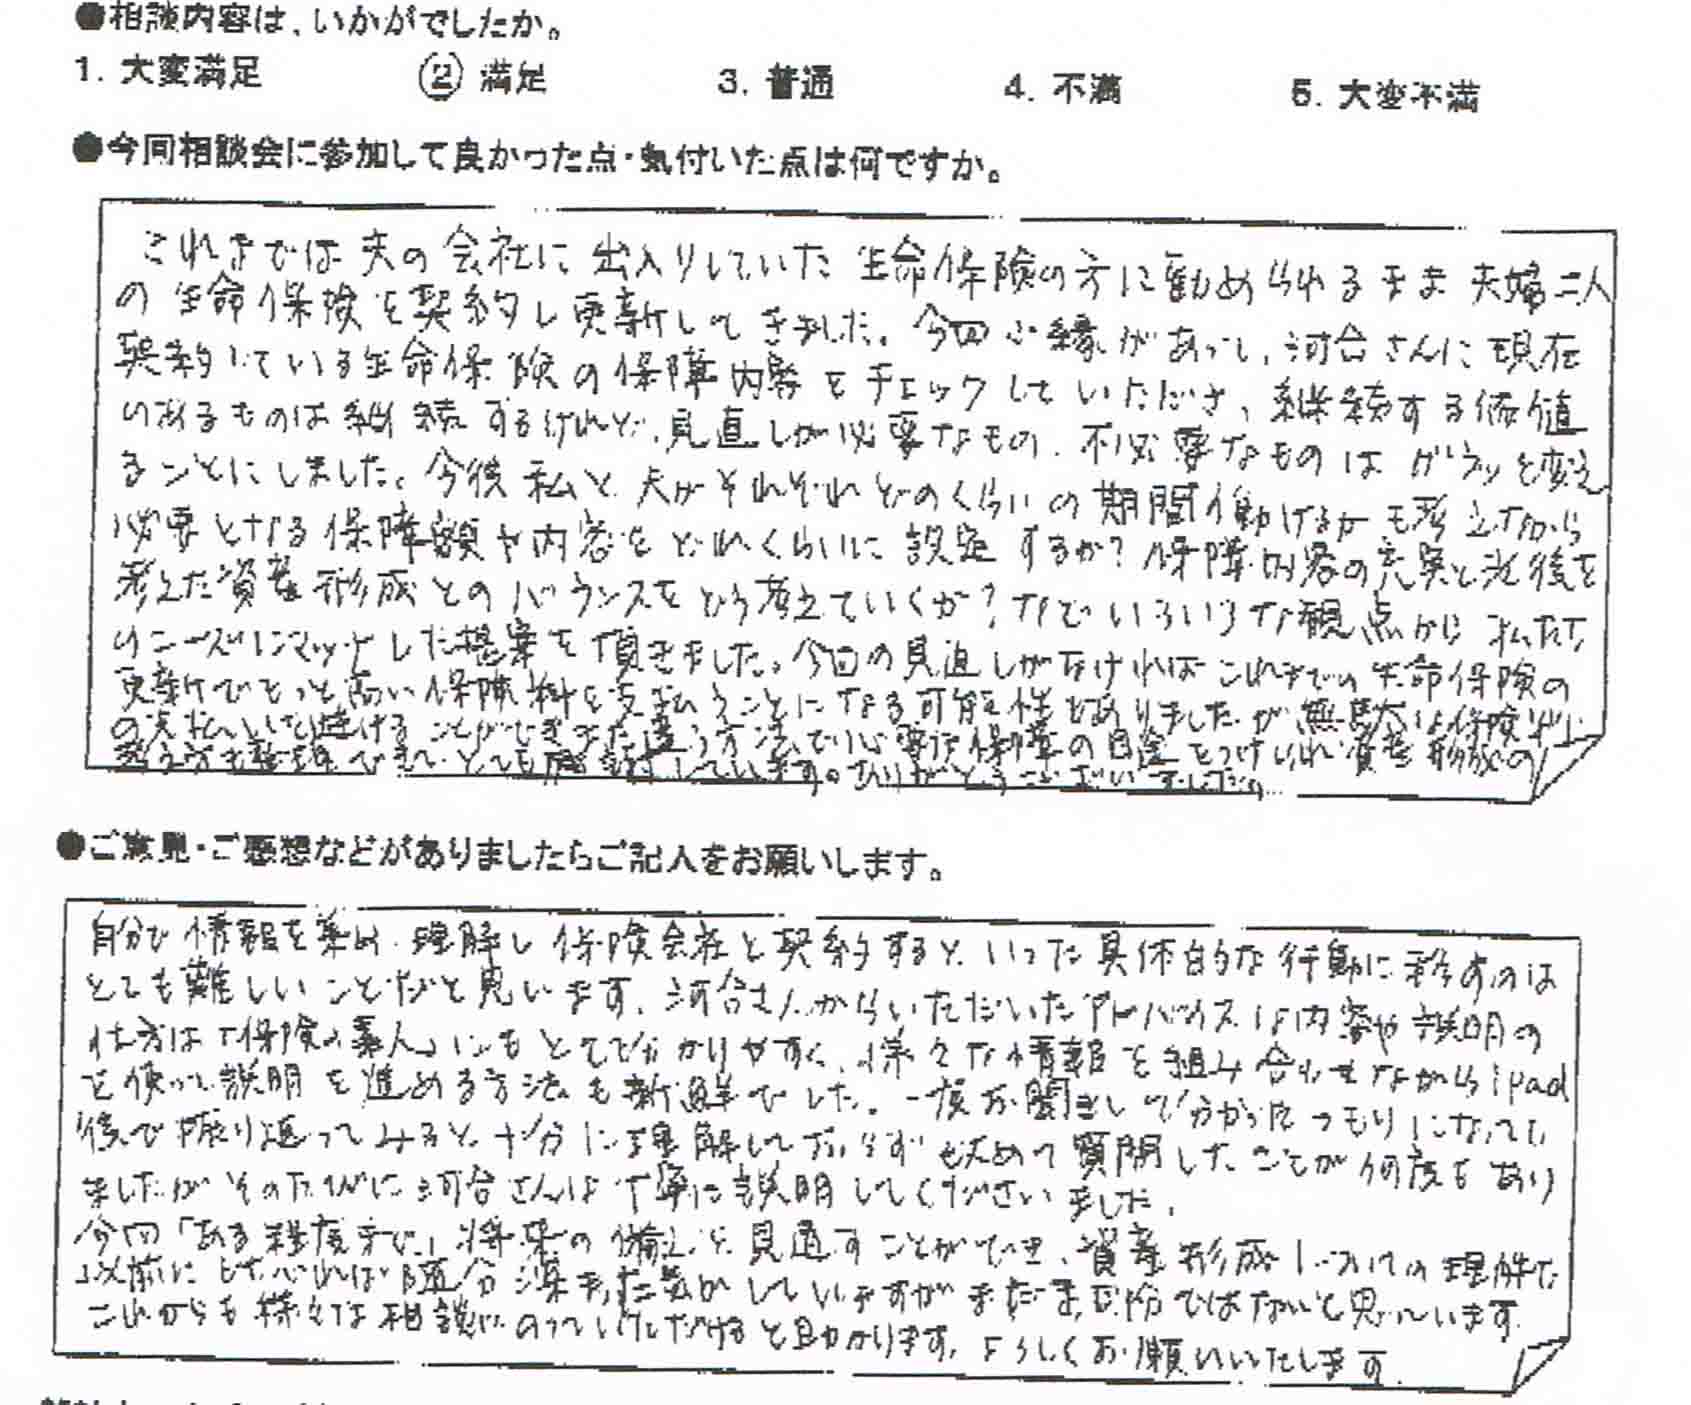 ●相談内容は、いかがでしたか。
1. 大変満足 ② 満足 3. 普通 4. 不満 5. 大変不満
●今回相談会に参加して良かった点・気付いた点は何ですか。
これまでは夫の会社に出入りしていた生命保険の方に勧められるまま夫婦二人
の生命保険を契約し更新してきました。今回ご縁があって、河合さんに現在
契約している生命保険の保障内容をチェックしていただき、継続する価値
のあるものは継続するけれど、見直しが必要なもの、不必要なものはガラッと変え
ることにしました。今後私と夫がそれぞれどのくらいの期間働けるかも考えながら
必要となる保障額や内容をどれくらいに設定するか?保障内容の充実と老後を
考えた資産形成とのバランスをどう考えていくか?などいろいろな観点から私たち
のニーズにマッチした提案を頂きました。今回の見直しがなければこれまでの生命保険の
更新でもっと高い保険料を支払うことになる可能性もありましたが無駄な保険料
の支払いを避けることができまた違う方法で必要な保障の目途をつけられ資産形成の
考え方も整理できて、とても感謝しています。ありがとうございました。
●ご意見・ご感想などがありましたらご記入をお願いします。
自分で情報を集め、理解し保険会社と契約するといった具体的な行動に移すのは
とても難しいことだと思います。河合さんからいただいたアドバイスは内容や説明の
仕方は「保険の素人」にもとても分かりやすく、様々な情報を組み合わせながらipad
を使って説明を進める方法も新鮮でした。一度お聞きして分かったつもりになっても
後で振り返ってみると、十分に理解しておらず改めて質問したことが何度もあり
ましたがそのたびに河合さんは丁寧に説明してくださいました。
今回「ある程度まで」将来の備えを見通すことができ、資産形成についての理解も
以前にくらべれば随分深まった気がしていますがまだまだ十分ではないと思っています。
これからも様々な相談にのっていただけると助かります。よろしくお願いいたします。